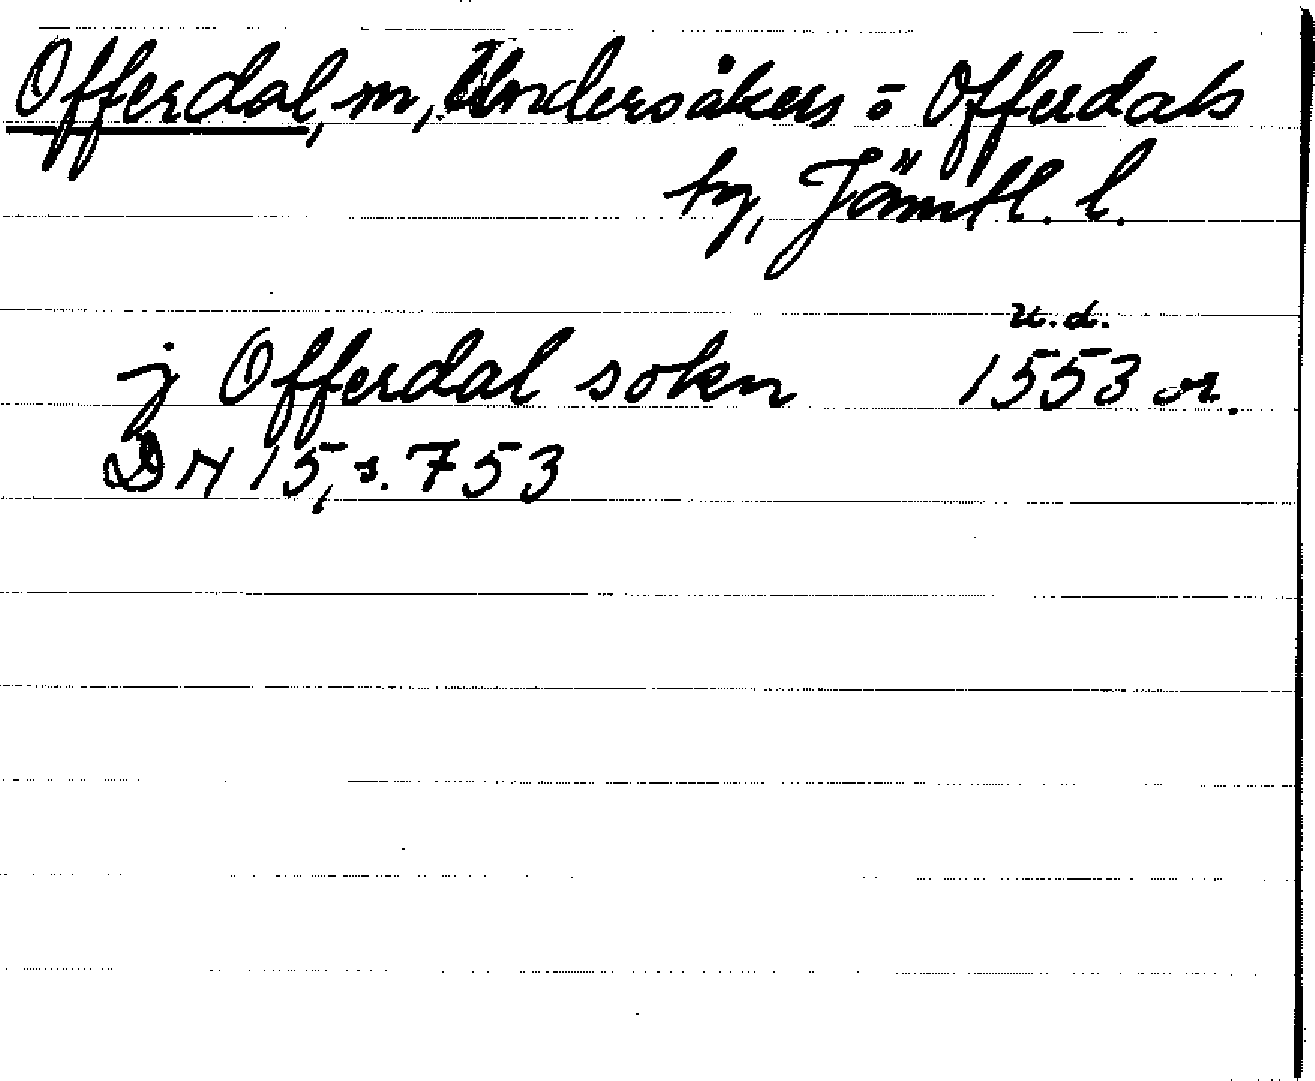 Offerdal, m, Undersåkers o Offerdals
tg, Jämtl. l.
u.d.
j Offerdal sokn 1553 or.
DN 15, s. 753